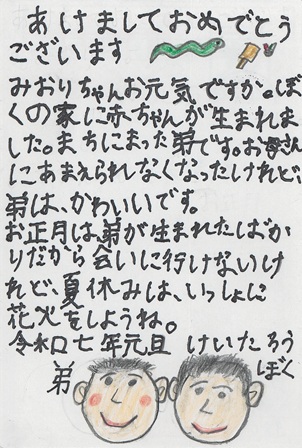 あけましておめでとう
ございます
みおりちゃんお元気ですか。ぼ
くの家に赤ちゃんが生まれま
した。まちにまった弟です。お母さん
にあまえられなくなったけれど、
弟は、かわいいです。
お正月は、弟が生まれたばか
りだから会いに行けないけ
れど、夏休みは、いっしょに
花火をしようね。
令和七年元旦 けいたろう
弟 ぼく